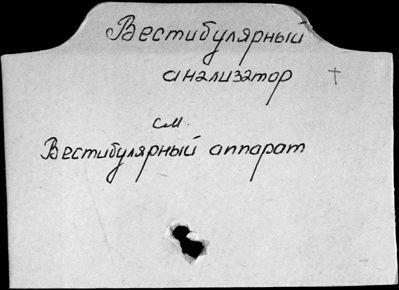 Вестибулярный
анализатор †
см.
Вестибулярный аппарат